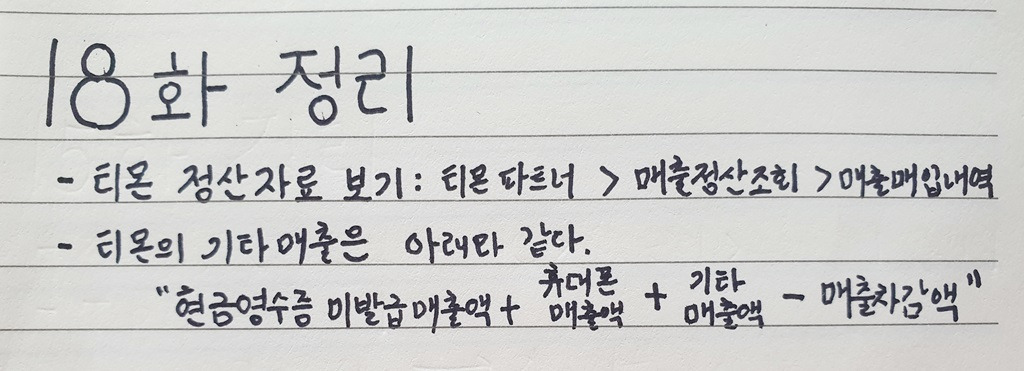 18화 정리
- 티몬 정산자료 보기: 티몬파트너 > 매출정산조회 > 매출매입내역
- 티몬의 기타매출은 아래와 같다.
"현금영수증 미발급매출액 + 휴대폰 매출액 + 기타 매출액 - 매출차감액"